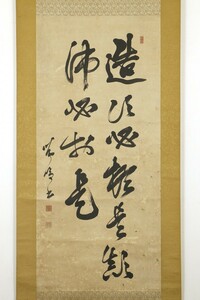 造次必於是顛
沛必於是